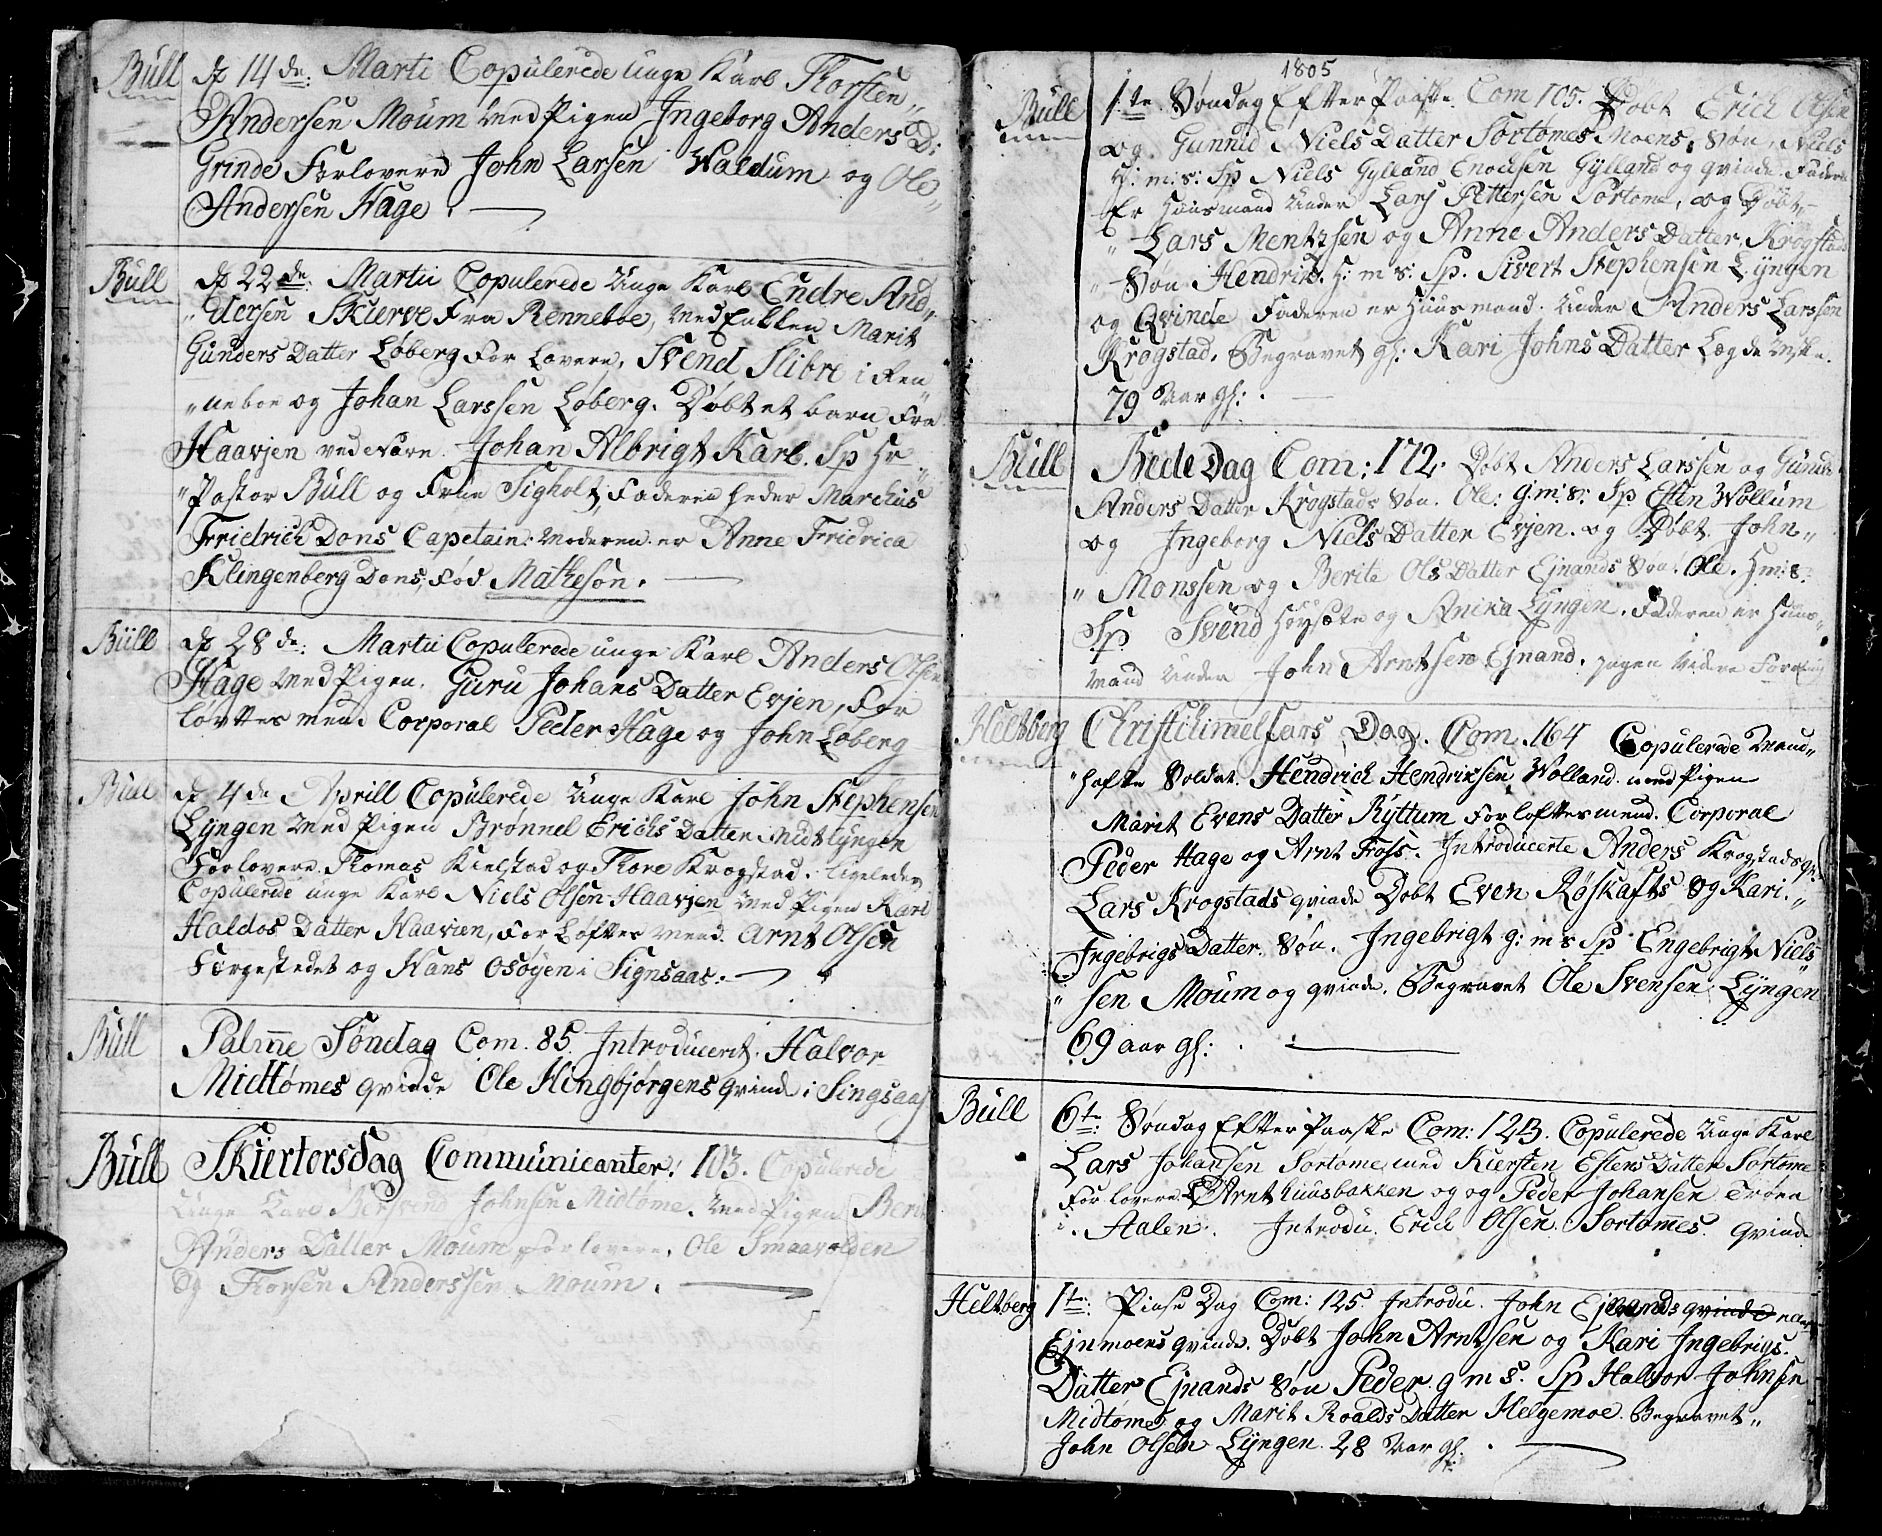 Bull d 14de: Marti Copulerede unge Karl Thorsten
Andersen Moum med Pigen Ingeborg Anders D:
Grinde Forlovere John Larsen Waldum og Ole
Andersen Hage.
Bull d 22de: Martii Copulerede Unge Karl Endre And„
„dersen Skierve Fra Renneboe, med Enkken Marit
Gunders Datter Løberg For Lovere, Svend Slibre i Ren„
„neboe og Johan Larssen Løberg. Døbt et barn Fra
Haavjen ved Navn Johan Albrigt Karl. Sp Hr
„Pastor Büll og Frue Sigholt, Faderen heder Marchus
Friedrich Dons Capetain. Moderen er Anne Fridrica
Klingenberg Dons, Fød Matheson.
Büll d 28de: Martii Copulerede unge Karl Anders Olsen
Hage med Pigen. Guru Johans Datter Evjen, For
løvttes mend Corporal Peder Hage og John Løberg
Büll d 4de Aprill Copulerede Unge Karl John Stephensen
Lyngen med Pigen Brønnel Erichs Datter Midtlyngen
Forlovere Thomas Kielstad og Thore Krogstad. ligeledes
Copulerede unge Karl Niels Olsen Haavjen med Pigen Kari
Haldos Datter Haavien, For Løftes mend. Arnt Olsen
Forgestedet og Hans Osøyen i Signsaas:
Büll Palme Søndag Com. 85. Introduceret. Halvor
Midtømes qvinde Ole Hingbjørgens qvinde i Singsaas
Büll Skiertorsdag Communicanter: 103. Copulerede
Unge Karl Bersvend Johnsen Midtøme. med Pigen Berit
Anders Datter Moum forlovere, Ole Smaavolden
og Thorsen Anderssen Moum.
1805
Büll 1:te Søndag Efter Paaske Com 105. Døbt Erich Olsen
og Gunnild Niels Datter Sortømes Moens Søn, Niels
H: m: s: Sp Niels Gylland Enochsen Gylland og qvinde. Faderen
Er Huusmand under Lars Pettersen Sortøme, og Døbt
„Lars Mentzsen og Anne Anders Datter, Krogstad
„Søn Hendrik. H: m s: Sp. Sivert Stephensen Lyngen
og Qvinde Faderen er Huusmand. Under Anders Larssen
Krogstad. Begravet gl: Kari Johns Datter Lægde Lem
79 Aar gl:.
Büll Bede Dag Com: 172. Døbt Anders Larssen og Gunild
Anders Datter Krogstads Søn. Ole: g: m: s: Sp Esten Wollum
og Ingeborg Niels Datter Evjen. og Døbt. John„
„Monssen og Berite Ols Datter Ejnands Søn. Ole. H m: s:
Sp Svend Høysæte og Anika Lyngen. Faderen er Huus„
mand Under John Arntsen Ejnand. ingen Videre Foretning
Heltberg Christi Himmelfars Dag. Com. 164 Copulerede Mand„
„hafte Soldat. Hendrich Hendriksen Wolland med Pigen
Marit Evens Datter Ryttum Forloftesmend. Corporal
Peder Hage og Arnt Foss. Introducerte Anders Krogstads qv:
Lars Krogstads qvinde Døbt Even Røskafts og Kari.„
Ingebrigs Datter. Søn. Ingebrigt g: m s Sp Engebrigt Niels„
„sen Moum og qvinde. Begravet Ole Svensen Lyngen
69 aar gl:.
Büll 6t: Søndag Efter Paaske Com: 123. Copulerede Unge Karl
Lars Johansen Sortøme, med Kiersten Estens Datter Sortøme
For lovere Arnt huusbakken og og Peder Johansen Trøen
i. Aalen. Introdu. Erich Olsen. Sortømes. qvinde
Heltberg 1te: Pinse Dag Com: 125. Introdu. John Ejnands qvinde
Ejnmoens qvinde. Døbt John Arntsen og Kari Ingebrigs.
Datter Ejnands Søn Peder. g m s. Sp Halvor Johnsen
Midtømes og Marit Roalds Datter Helgemoe. Begravet„
John Olsen Lyngen. 28 Aar gl.